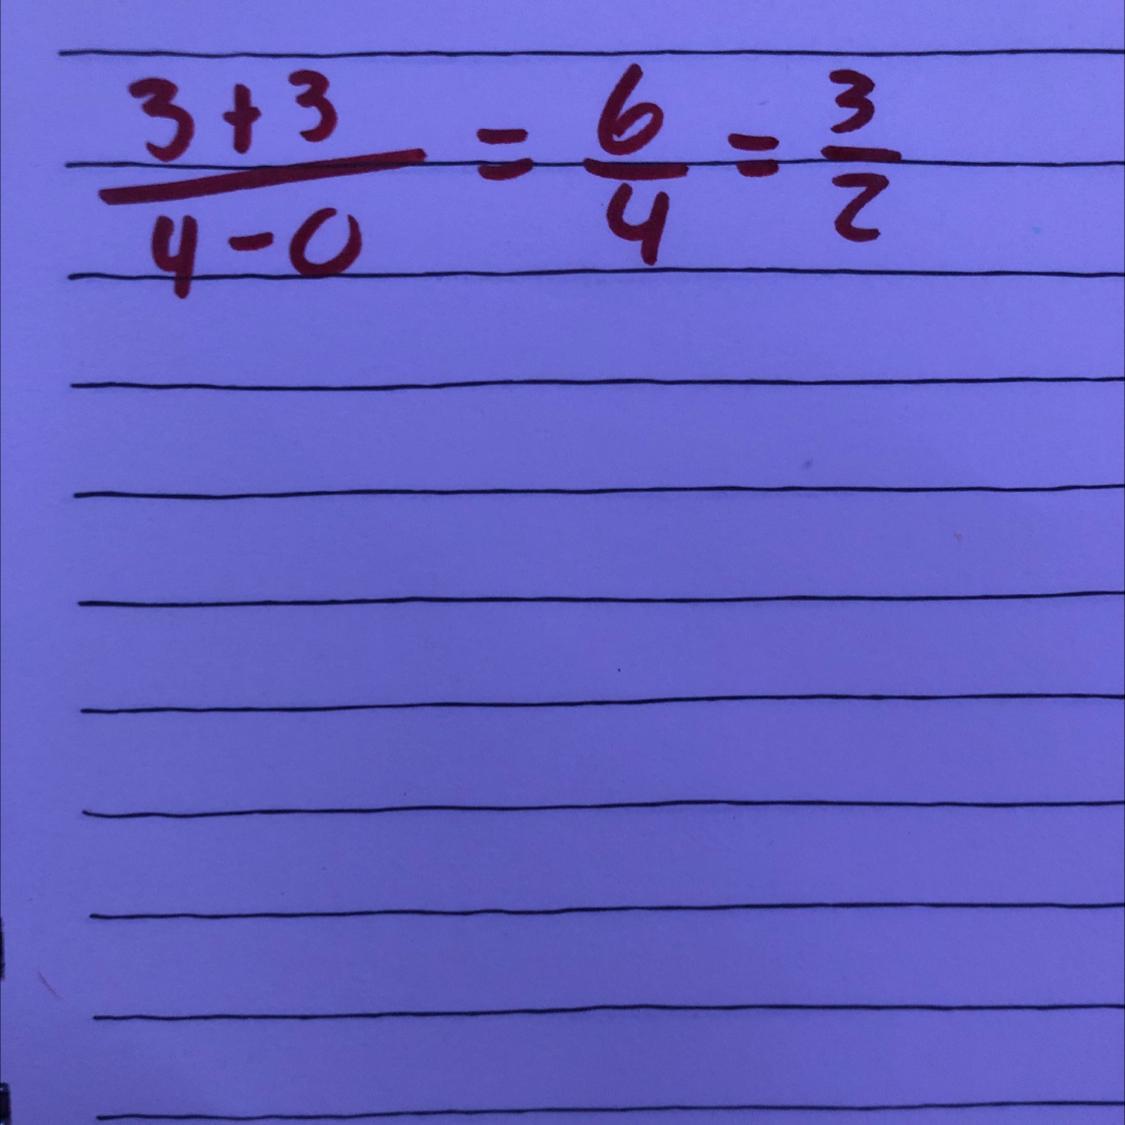 \frac{3+3}{4-0} = \frac{6}{4} = \frac{3}{2}